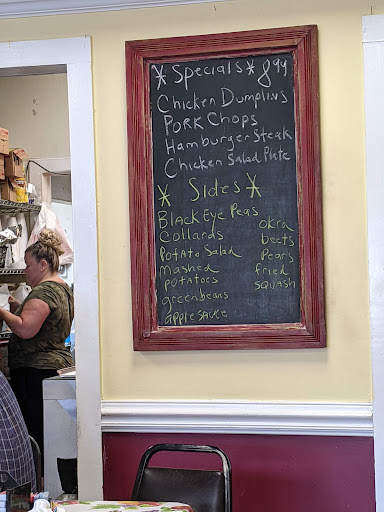 * Specials * 8 99
Chicken Dumplins
PORK Chops
Hamburger Steak
Chicken Salad Plate
* Sides *
Black Eye Peas
Collards
Potato Salad
Mashed
potatoes
greenbeans
applesauce
okra
beets
Pears
fried
squash